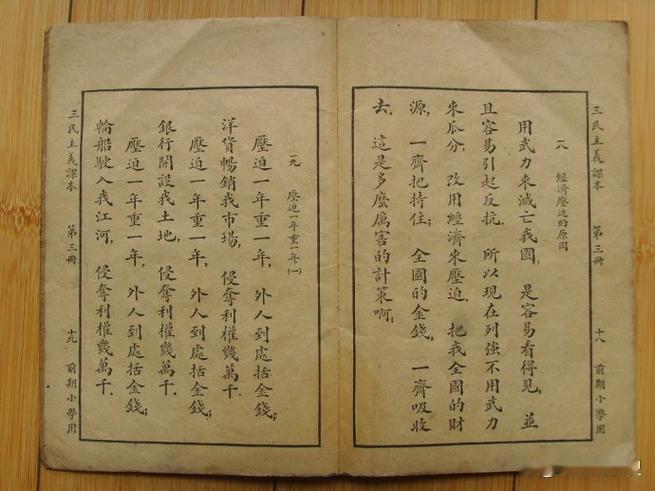 三民主義課本 第三冊 十八 前期小學用
一八 經濟壓迫的原因
用武力來滅亡我國，是容易看得見，並
且容易引起反抗．所以現在列強不用武力
來瓜分，改用經濟來壓迫．把我全國的財
源，一齊把持住；全國的金錢，一齊吸收
去．這是多麼厲害的計策啊；
一九 壓迫一年重一年(一)
壓迫一年重一年，外人到處括金錢；
洋貨暢銷我市場，侵奪利權幾萬千．
壓迫一年重一年，外人到處括金錢；
銀行開設我土地，侵奪利權幾萬千．
壓迫一年重一年，外人到處括金錢；
輪船駛入我江河，侵奪利權幾萬千．
三民主義課本 第三冊 十九 前期小學用